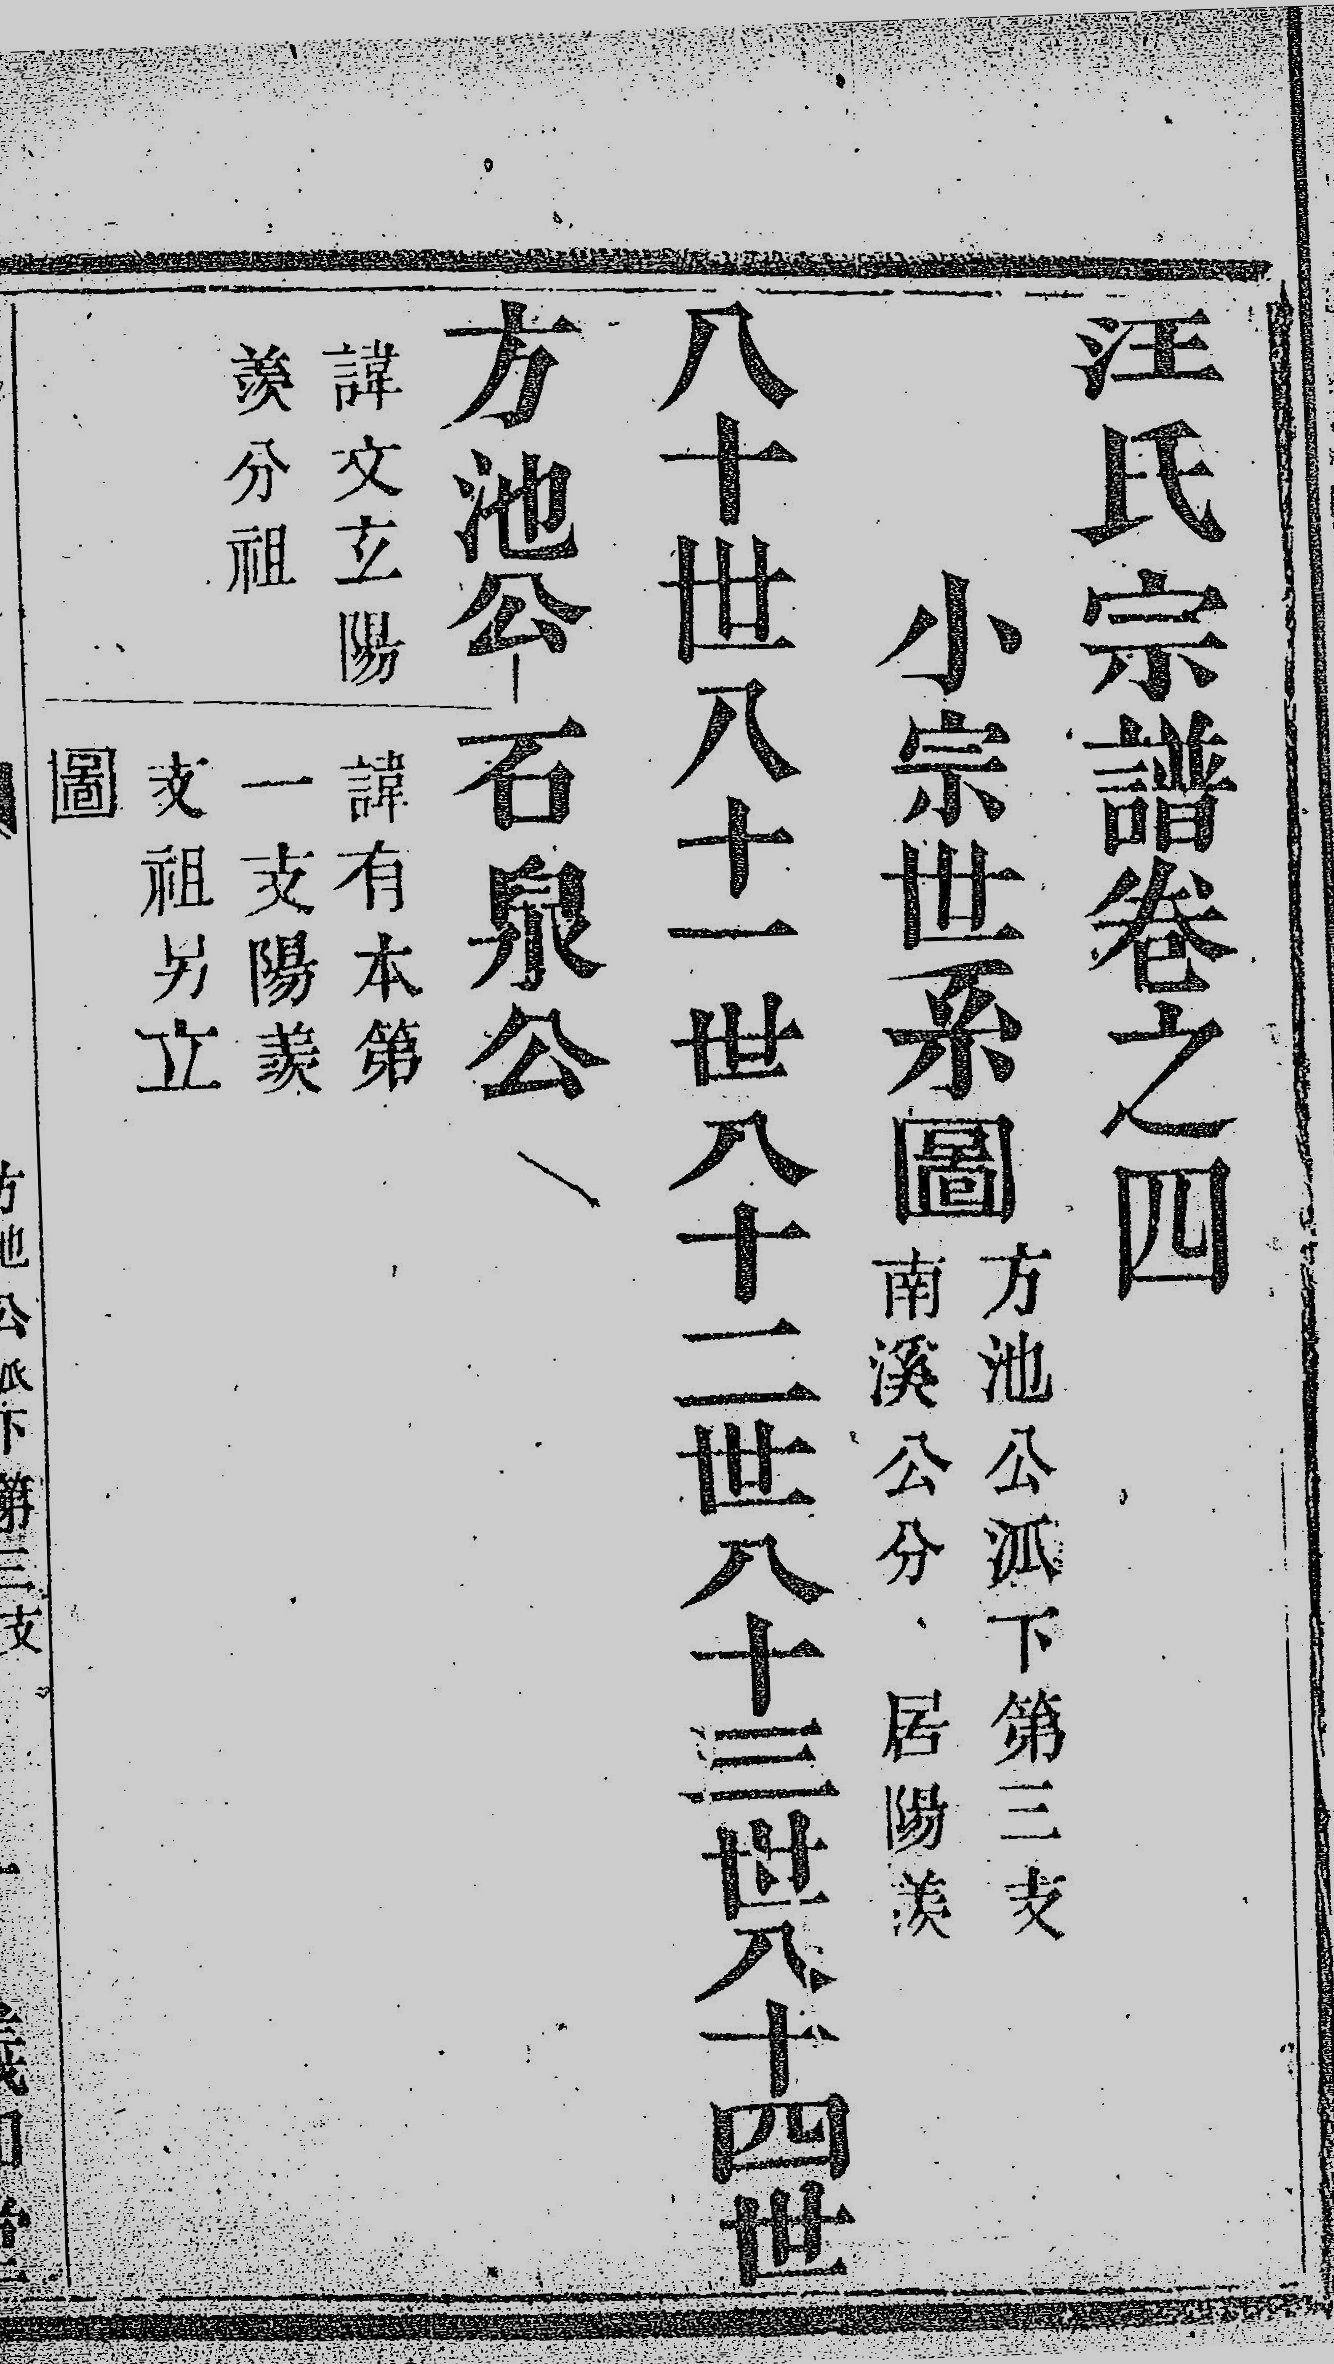 汪氏宗譜卷之四
小宗世系圖
方池公派下第三支
南溪公分居陽羨
八十世八十一世八十二世八十三世八十四世
方池公
諱文玄陽
羨分祖
石泉公
諱有本第
一支陽羨
支祖另立
圖
方池公派下第三支